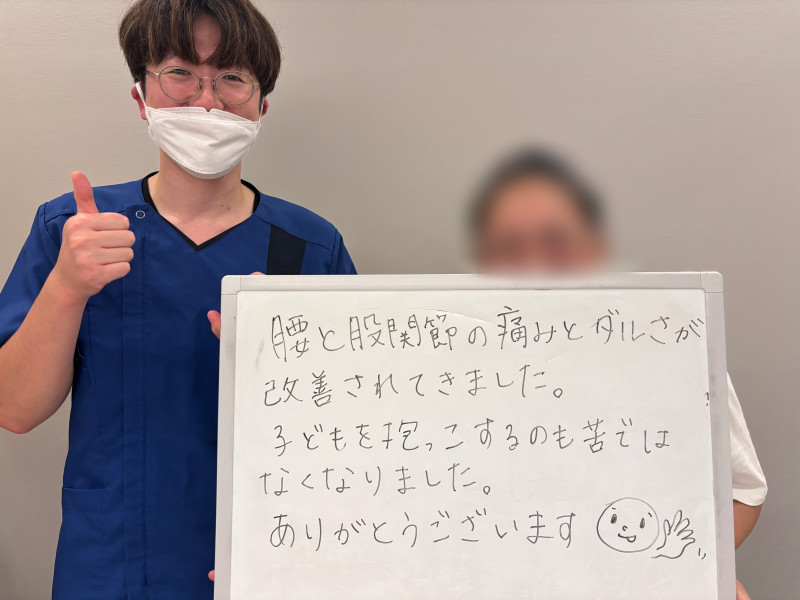 腰と股関節の痛みとダルさが
改善されてきました。
子どもを抱っこするのも苦では
なくなりました。
ありがとうございます